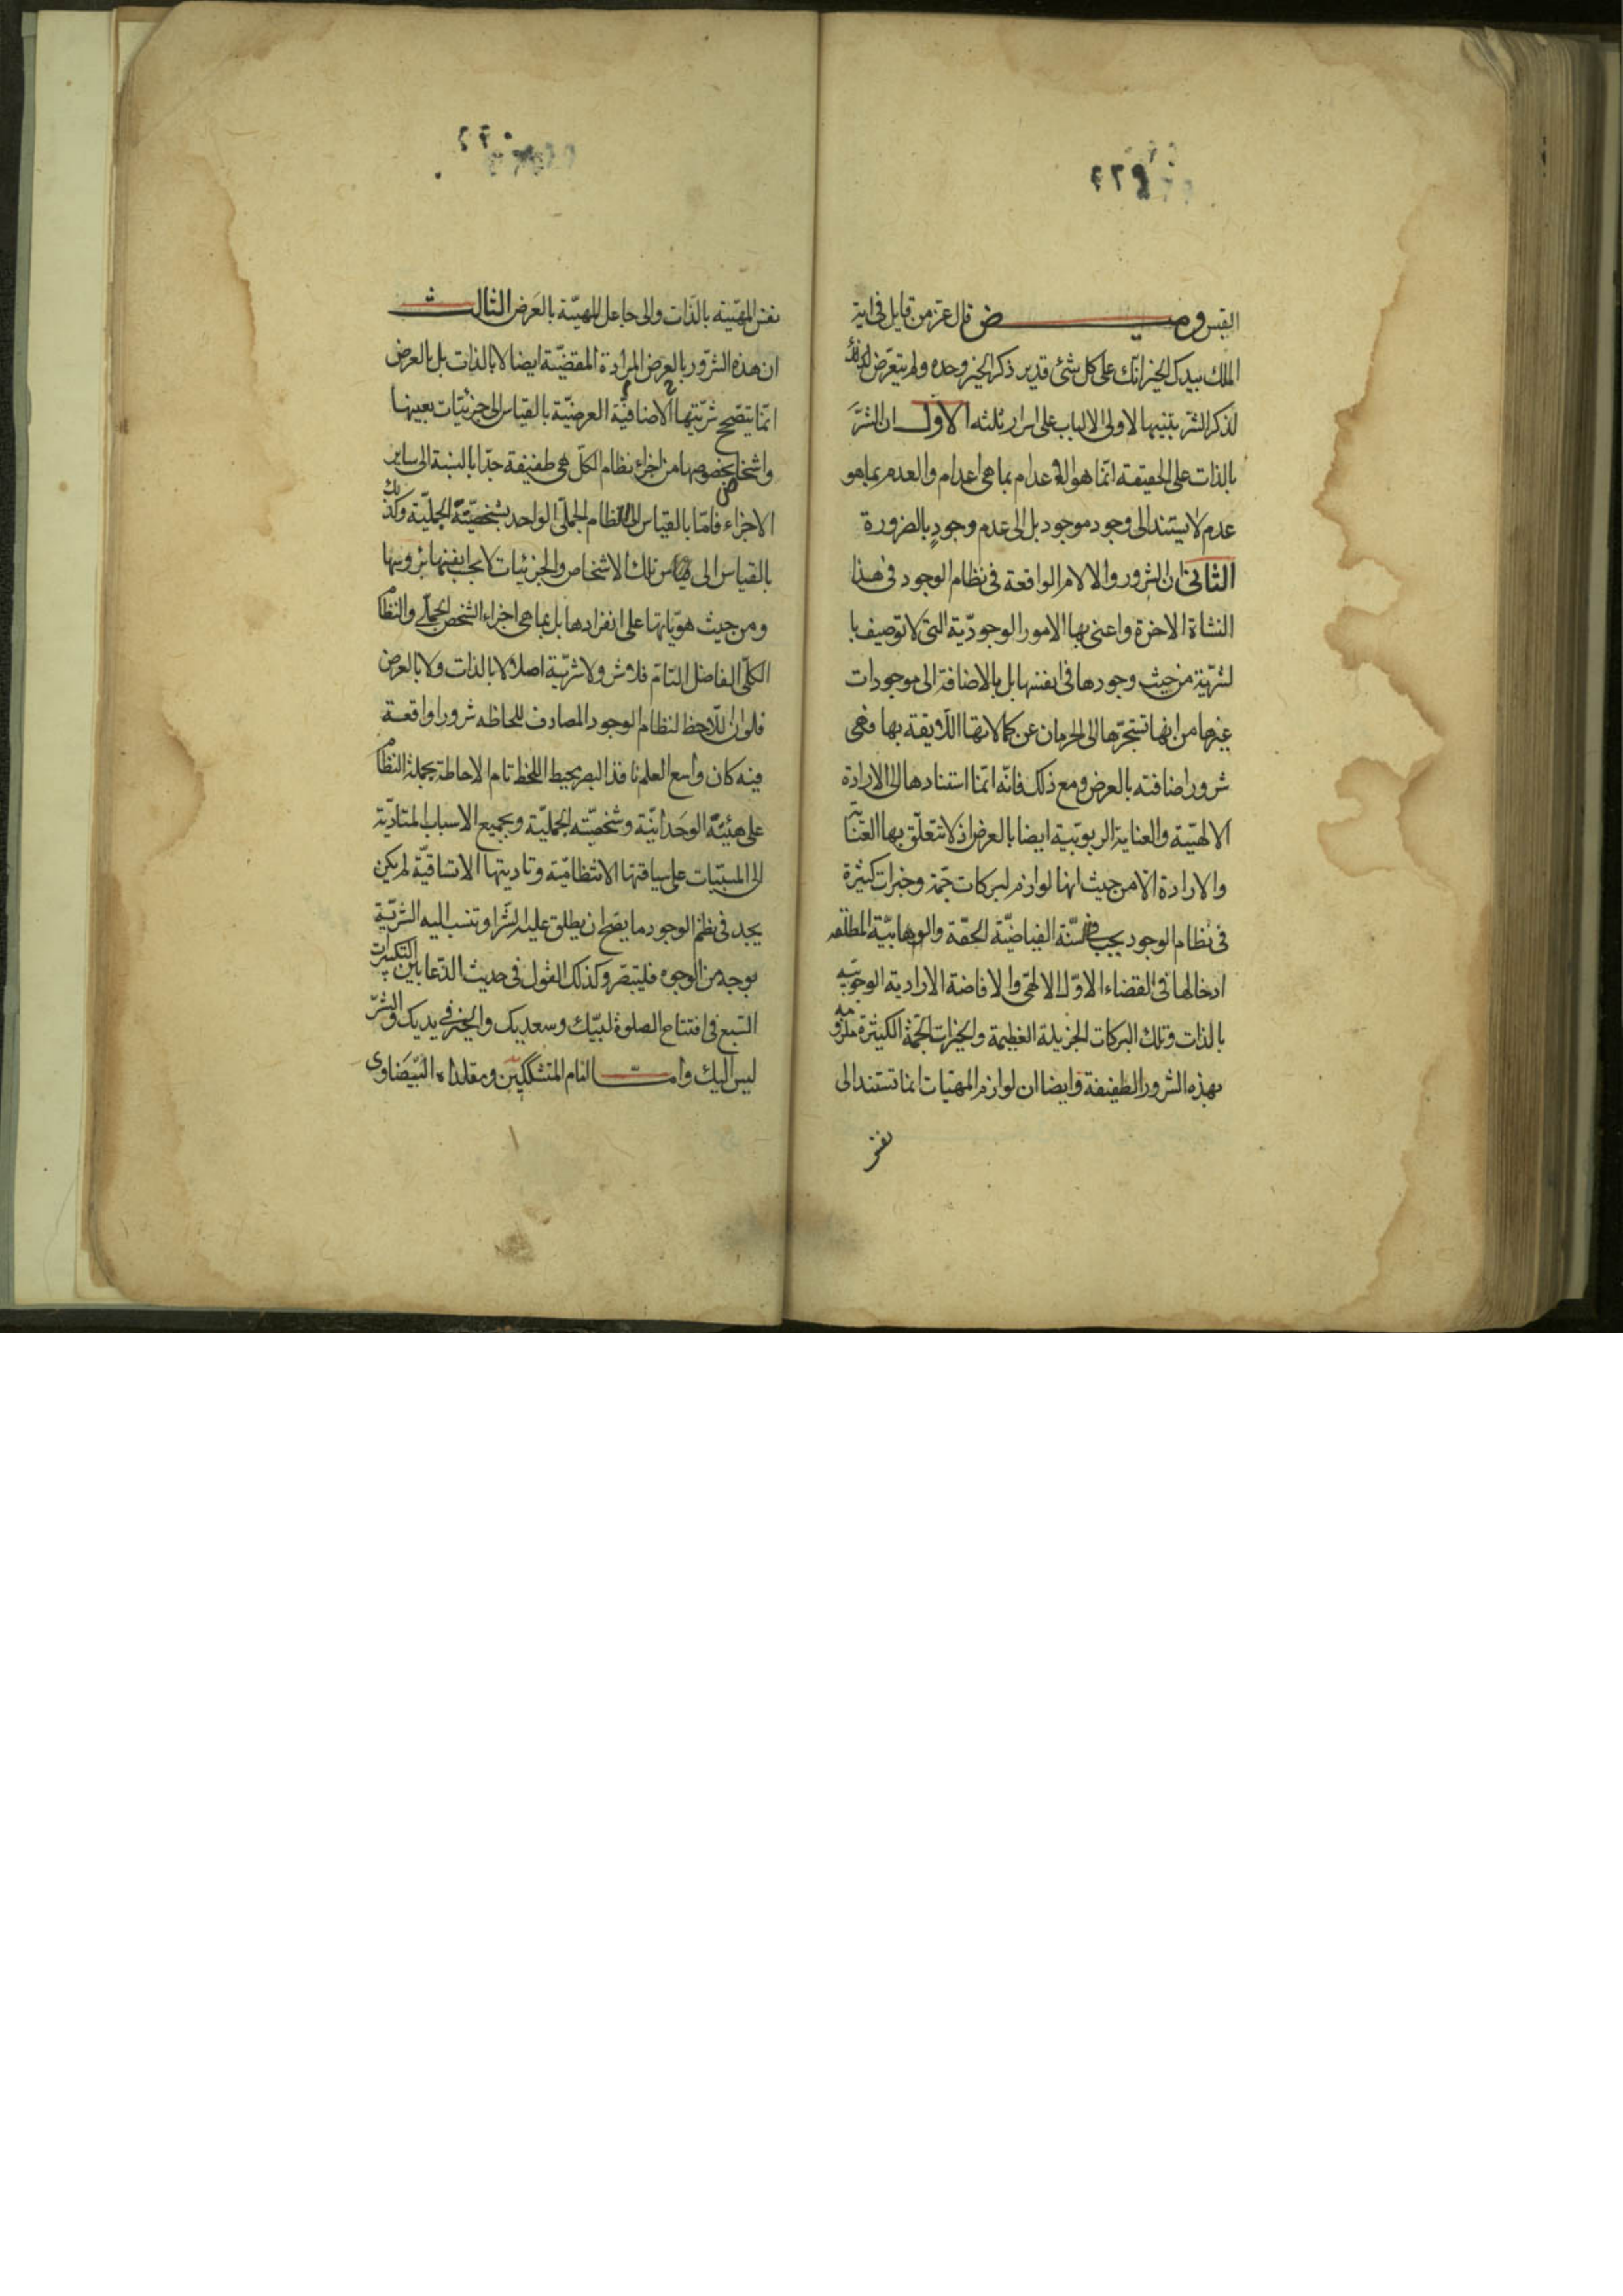 القبس وميض قال عز من قايل في اية
الملك بيدك الخير انك على كل شئ قدير ذكر الخير وحده ولم يتعرض
لذكر الشر تنبيها لاولى الالباب على اسرار ثلثه الاول ان الشر
بالذات على الحقيقة انما هو الاعدام بما هي اعدام والعدم بما هو
عدم لا يستند الى وجود موجود بل الى عدم وجودٍ بالضرورة
الثانى ان الشرور والالام الواقعة فى نظام الوجود فى هذا
النشاة الاخرة واعنى بها الامور الوجودية التى لا توصف با
لشرية من حيث وجودها فى انفسها بل بالاضافة الى موجودات
غيرها من انها تستجرها الى الحرمان عن كمالاتها اللايقة بها فهى
شرور اضافته بالعرض ومع ذلك فانه انما استنادها الى الارادة
الالهية والعناية الربوبية ايضا بالعرض اذ لا تتعلق بها العناية
والارادة الا من حيث انها لوازم لبركات جمة وخيرات كثيرة
فى نظام الوجود يجب فى سنة الفياضية الحقة والوهابية المطلقه
ادخالها فى القضاء الاول الالهى والافاضة الارادية الوجوبيه
بالذات وتلك البركات الجزيلة العظيمة والخيرات الجمة الكثيرة ملزومه
بهذه الشرور الطفيفة وايضا ان لوازم المهيات انما تستند الى
نفس
نفس المهية بالذات والى جاعل المهية بالعرض الثالث
ان هذه الشرور بالعرض المرادة المقضية ايضا لا بالذات بل بالعرض
انما يتصحح شريتها الاضافية العرضية بالقياس الى جزئيات بعينها
واشخاص بخصوصها من اجزاء نظام الكل هى طفيفة جدا بالنسبة الى ساير
الاجزاء فاما بالقياس الى النظام الجملى الواحد بشخصيته الجملية وكذلك
بالقياس الى تلك الاشخاص والجزئيات لا بحسب انفسها برؤسها
ومن حيث هوياتها على انفرادها بل بما هى اجزاء الشخص الجملى والنظام
الكلى الفاضل التام فلا شر ولا شرية اصلا لا بالذات ولا بالعرض
فلو ان اللاحظ لنظام الوجود المصادف للحاظه شرورا واقعة
فيه كان واسع العلم نافذ البصر محيط اللحظ تام الاحاطة بجملة النظام
على هيئته الوحدانية وشخصيته الجملية وبجميع الاسباب المتادية
الى المسببات على سياقتها الانتظامية وتاديتها الاتساقية لم يكن
يجد فى نظم الوجود ما يصح ان يطلق عليه الشر او تنسب اليه الشرية
بوجه من الوجوه فليتبصر وكذلك القول فى حديث الدعا بين التكبيرات
السبع فى افتتاح الصلوة لبيك وسعديك والخير فى يديك والشر
ليس اليك واما امام المتشككين ومقلداه البيضاوى